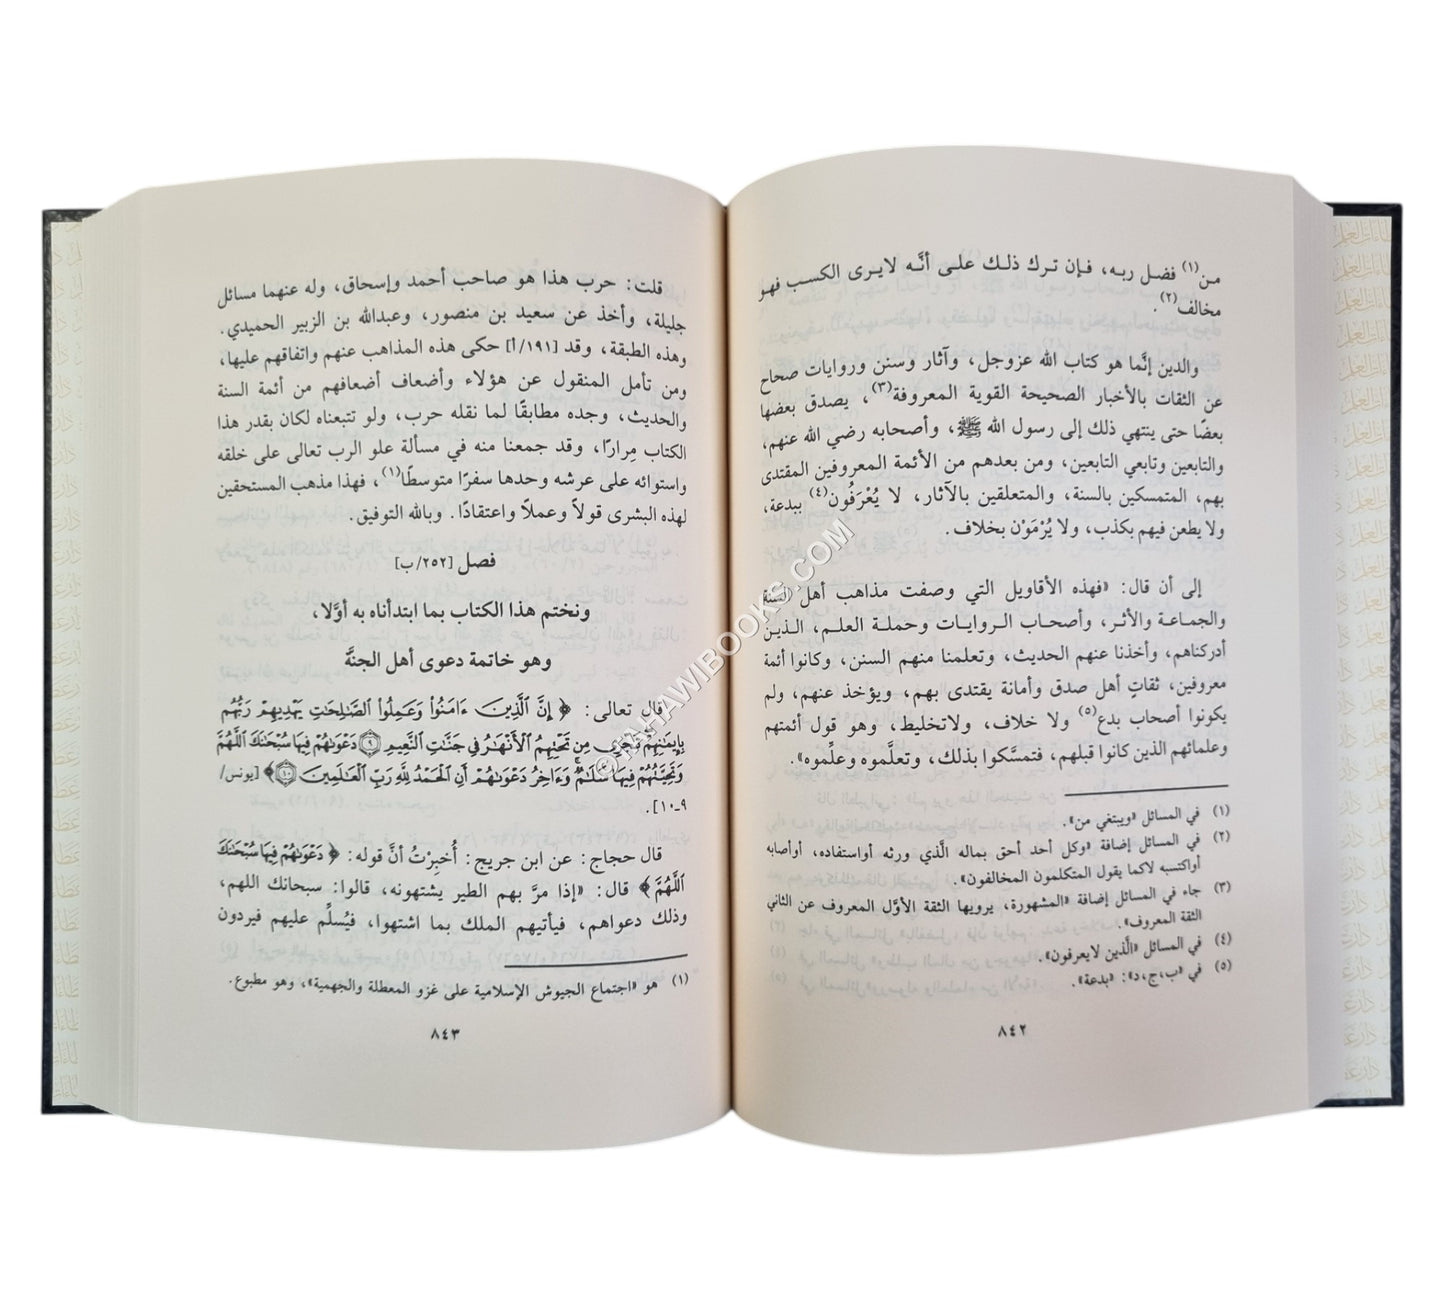 من(١) فضل ربه، فإن ترك ذلك على أنَّه لايرى الكسب فهو
مخالف(٢).
والدين إنَّما هو كتاب الله عزوجل، وآثار وسنن وروايات صحاح
عن الثقات بالأخبار الصحيحة القوية المعروفة(٣)، يصدق بعضها
بعضًا حتى ينتهي ذلك إلى رسول الله ﷺ، وأصحابه رضي الله عنهم،
والتابعين وتابعي التابعين، ومن بعدهم من الأئمة المعروفين المقتدى
بهم، المتمسكين بالسنة، والمتعلقين بالآثار، لا يُعْرَفُون(٤) ببدعة،
ولا يطعن فيهم بكذب، ولا يُرْمَوْن بخلاف.
إلى أن قال: «فهذه الأقاويل التي وصفت مذاهب أهل السنة
والجماعة والأثر، وأصحاب الروايات وحملة العلم، الذين
أدركناهم، وأخذنا عنهم الحديث، وتعلمنا منهم السنن، وكانوا أئمة
معروفين، ثقاتِ أهل صدق وأمانة يقتدى بهم، ويؤخذ عنهم، ولم
يكونوا أصحاب بدع(٥) ولا خلاف، ولاتخليط، وهو قول أئمتهم
وعلمائهم الذين كانوا قبلهم، فتمسَّكوا بذلك، وتعلَّموه وعلِّموه».
(١) في المسائل «ويبتغي من».
(٢) في المسائل إضافة «وكل أحد أحق بماله الَّذي ورثه أواستفاده، أوأصابه
أواكتسبه لاكما يقول المتكلمون المخالفون».
(٣) جاء في المسائل إضافة «المشهورة، يرويها الثقة الأوَّل المعروف عن الثاني
الثقة المعروف».
(٤) في المسائل «الَّذين لايعرفون».
(٥) في «ب،ج،د»: «بدعة».
٨٤٢
قلت: حرب هذا هو صاحب أحمد وإسحاق، وله عنهما مسائل
جليلة، وأخذ عن سعيد بن منصور، وعبدالله بن الزبير الحميدي.
وهذه الطبقة، وقد [١٩١/أ] حكى هذه المذاهب عنهم واتفاقهم عليها،
ومن تأمل المنقول عن هؤلاء وأضعاف أضعافهم من أئمة السنة
والحديث، وجده مطابقًا لما نقله حرب، ولو تتبعناه لكان بقدر هذا
الكتاب مِرارًا، وقد جمعنا منه في مسألة علو الرب تعالى على خلقه
واستوائه على عرشه وحدها سفرًا متوسطًا(١)، فهذا مذهب المستحقين
لهذه البشرى قولاً وعملاً واعتقادًا. وبالله التوفيق.
فصل [٢٥٢/ب]
ونختم هذا الكتاب بما ابتدأناه به أوَّلا،
وهو خاتمة دعوى أهل الجنَّة
قال تعالى: ﴿ إِنَّ ٱلَّذِينَ ءَامَنُوا۟ وَعَمِلُوا۟ ٱلصَّـٰلِحَـٰتِ يَهْدِيهِمْ رَبُّهُم
بِإِيمَـٰنِهِمْ تَجْرِى مِن تَحْتِهِمُ ٱلْأَنْهَـٰرُ فِى جَنَّـٰتِ ٱلنَّعِيمِ ٩ دَعْوَىٰهُمْ فِيهَا سُبْحَـٰنَكَ ٱللَّهُمَّ
وَتَحِيَّتُهُمْ فِيهَا سَلَـٰمٌ وَءَاخِرُ دَعْوَىٰهُمْ أَنِ ٱلْحَمْدُ لِلَّهِ رَبِّ ٱلْعَـٰلَمِينَ ١٠﴾ [يونس/
٩-١٠].
قال حجاج: عن ابن جريج: أُخبِرْتُ أنَّ قوله: ﴿ دَعْوَىٰهُمْ فِيهَا سُبْحَـٰنَكَ
ٱللَّهُمَّ ﴾ قال: «إذا مرَّ بهم الطير يشتهونه، قالوا: سبحانك اللهم،
وذلك دعواهم، فيأتيهم الملك بما اشتهوا، فيُسلِّم عليهم فيردون
(١) هو «اجتماع الجيوش الإسلامية على غزو المعطلة والجهمية»، وهو مطبوع.
٨٤٣
©TAHAWIBOOKS.COM